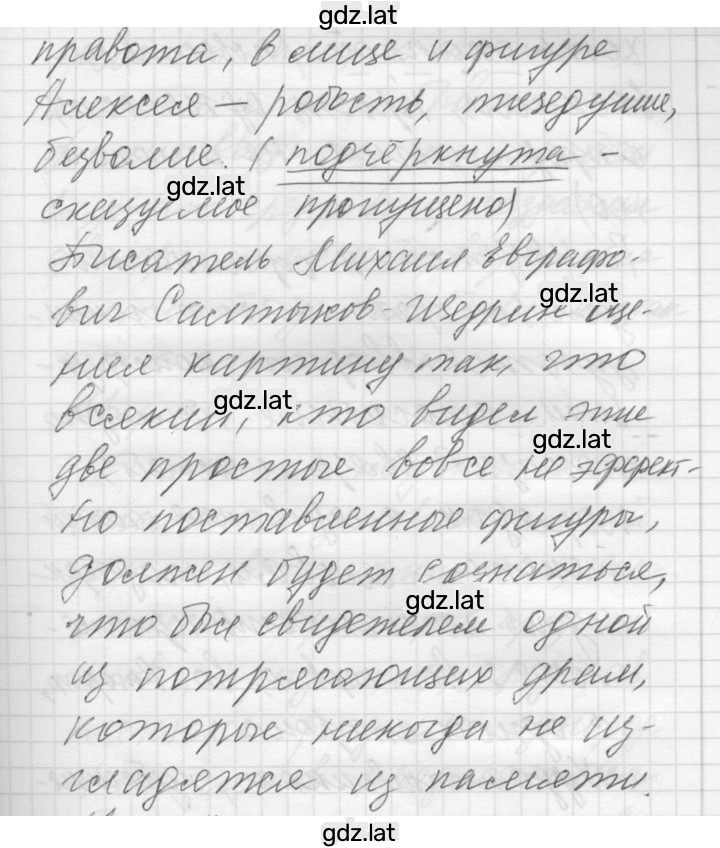 gdz.lat
правота, в лице и фигуре
Алексея — робость, тщедушие,
безволие. (подчёркнута -
gdz.lat
сказуемое пропущено)
Писатель Михаил Евграфо-
gdz.lat
вич Салтыков-Щедрин оце-
нил картину так, что
gdz.lat
всякий, кто видел эти
gdz.lat
две простые вовсе не эффект-
но поставленные фигуры,
должен будет сознаться,
gdz.lat
что был свидетелем одной
из потрясающих драм,
которые никогда не из-
гладятся из памяти.
gdz.lat